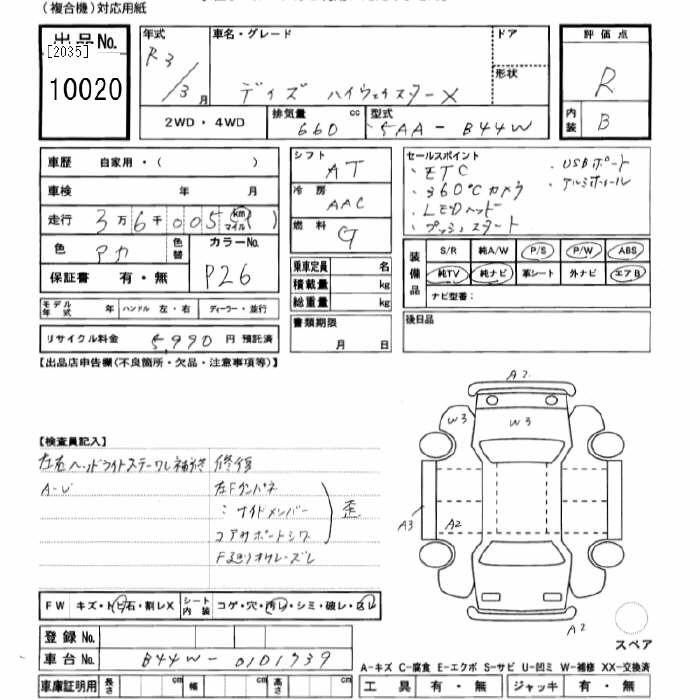 (複合機)対応用紙
出品No.
[2035]
10020
年式
R3/3月
車名・グレード
デイズ ハイウェイスターX
ドア
形状
評価点
R
内装
B
2WD・4WD
排気量
660 cc
型式
5AA-B44W
車歴 自家用・( )
車検 年 月
走行 3万6千005 km マイル
色 アカ
色替
カラーNo.
P26
保証書 有・無
モデル年式 年 ハンドル 左・右 ディーラー・並行
リサイクル料金 5,990円 預託済
シフト
AT
冷房
AAC
燃料
G
乗車定員 名
積載量 kg
総重量 kg
書類期限
月 日
セールスポイント
・ETC
・360°Cカメラ
・LEDヘッド
・プッシュスタート
・USBポート
・アルミホイール
装備品
S/R 純A/W P/S P/W ABS
純TV 純ナビ 革シート 外ナビ エアB
ナビ型番:
後日品
【出品店申告欄(不良箇所・欠品・注意事項等)】
【検査員記入】
左右ヘッドライトステーワレ補修
A-U
修復
左Fクンパネ
: サイドメンバー
コアサポートシワ
歪
F廻りオサレ・ズレ
A2
W3
W3
A3
A2
A2
スペア
FW キズ・トビ石・割レX
シート内装 コゲ・穴・汚レ・シミ・破レ・区レ
登録No.
車台No. B44W-0101939
車庫証明用 長さ cm 幅 cm 高さ cm
A-キズ C-腐食 E-エクボ S-サビ U-凹ミ W-補修 XX-交換済
工具 有・無 ジャッキ 有・無